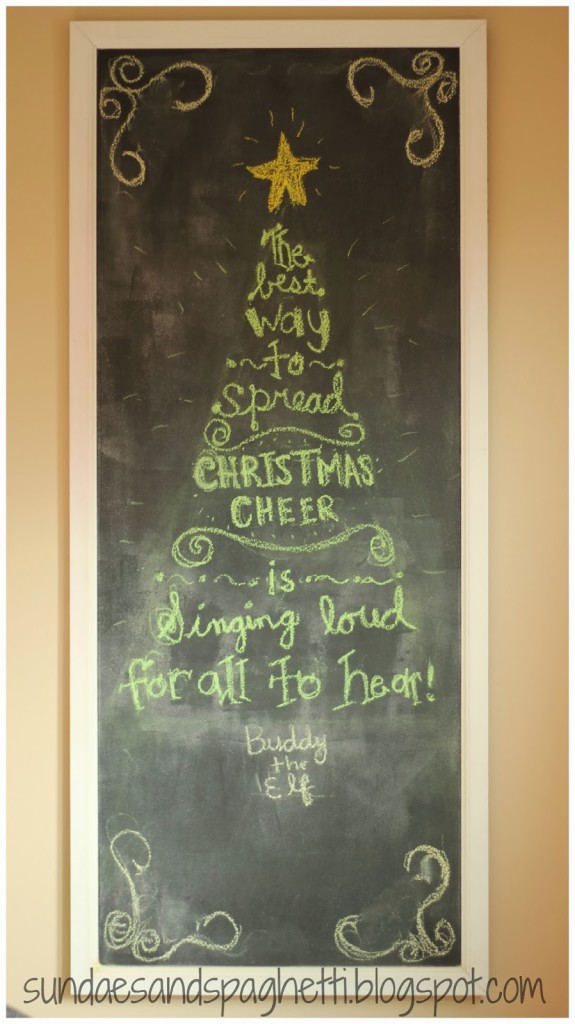 The
best
way
to
spread
CHRISTMAS
CHEER
is
Singing loud
for all to hear!
Buddy
the
Elf
sundaesandspaghetti.blogspot.com